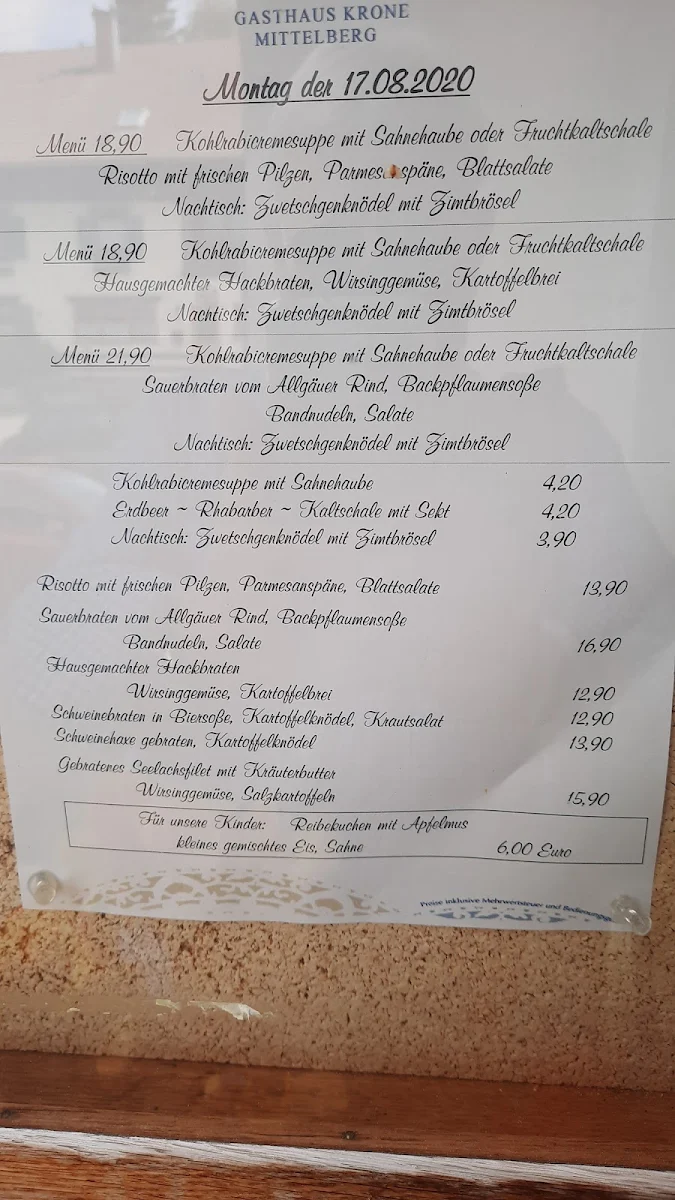 GASTHAUS KRONE
MITTELBERG
Montag der 17.08.2020
Menü 18,90 Kohlrabicremesuppe mit Sahnehaube oder Fruchtkaltschale
Risotto mit frischen Pilzen, Parmesanspäne, Blattsalate
Nachtisch: Zwetschgenknödel mit Zimtbrösel
Menü 18,90 Kohlrabicremesuppe mit Sahnehaube oder Fruchtkaltschale
Hausgemachter Hackbraten, Wirsinggemüse, Kartoffelbrei
Nachtisch: Zwetschgenknödel mit Zimtbrösel
Menü 21,90 Kohlrabicremesuppe mit Sahnehaube oder Fruchtkaltschale
Sauerbraten vom Allgäuer Rind, Backpflaumensoße
Bandnudeln, Salate
Nachtisch: Zwetschgenknödel mit Zimtbrösel
Kohlrabicremesuppe mit Sahnehaube 4,20
Erdbeer ~ Rhabarber ~ Kaltschale mit Sekt 4,20
Nachtisch: Zwetschgenknödel mit Zimtbrösel 3,90
Risotto mit frischen Pilzen, Parmesanspäne, Blattsalate 13,90
Sauerbraten vom Allgäuer Rind, Backpflaumensoße
Bandnudeln, Salate 16,90
Hausgemachter Hackbraten
Wirsinggemüse, Kartoffelbrei 12,90
Schweinebraten in Biersoße, Kartoffelknödel, Krautsalat 12,90
Schweinehaxe gebraten, Kartoffelknödel 13,90
Gebratenes Seelachsfilet mit Kräuterbutter
Wirsinggemüse, Salzkartoffeln 15,90
Für unsere Kinder: Reibekuchen mit Apfelmus
kleines gemischtes Eis, Sahne 6,00 Euro
Preise inklusive Mehrwertsteuer und Bedienung